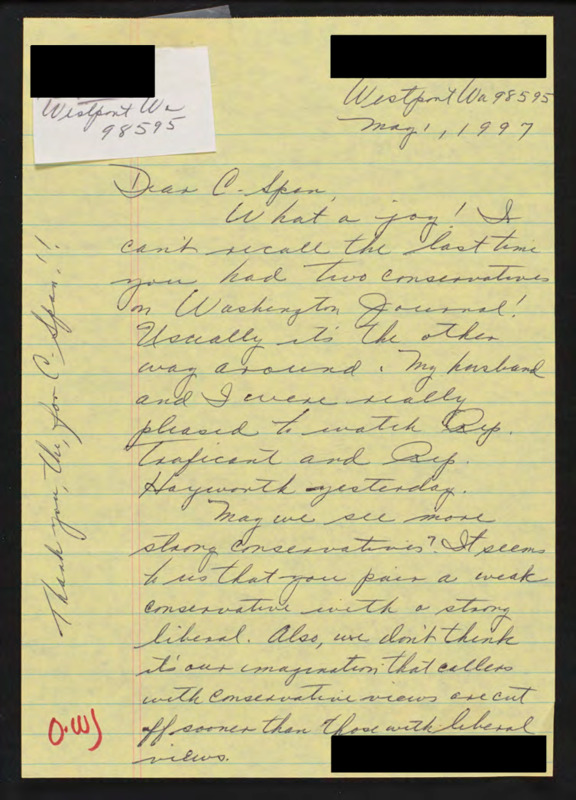 Westport Wa
98595
Westport Wa 98595
May 1, 1997
Dear C-Span,
What a joy! I
can't recall the last time
you had two conservatives
on Washington Journal!
Usually it's the other
way around. My husband
and I were really
pleased to watch Rep.
Traficant and Rep.
Hayworth yesterday.
May we see more
strong conservatives? It seems
to us that you pair a weak
conservative with a strong
liberal. Also, we don't think
it's our imagination that callers
with conservative views are cut
off sooner than those with liberal
views.
Thank you, tho, for C-Span!!
O.WJ